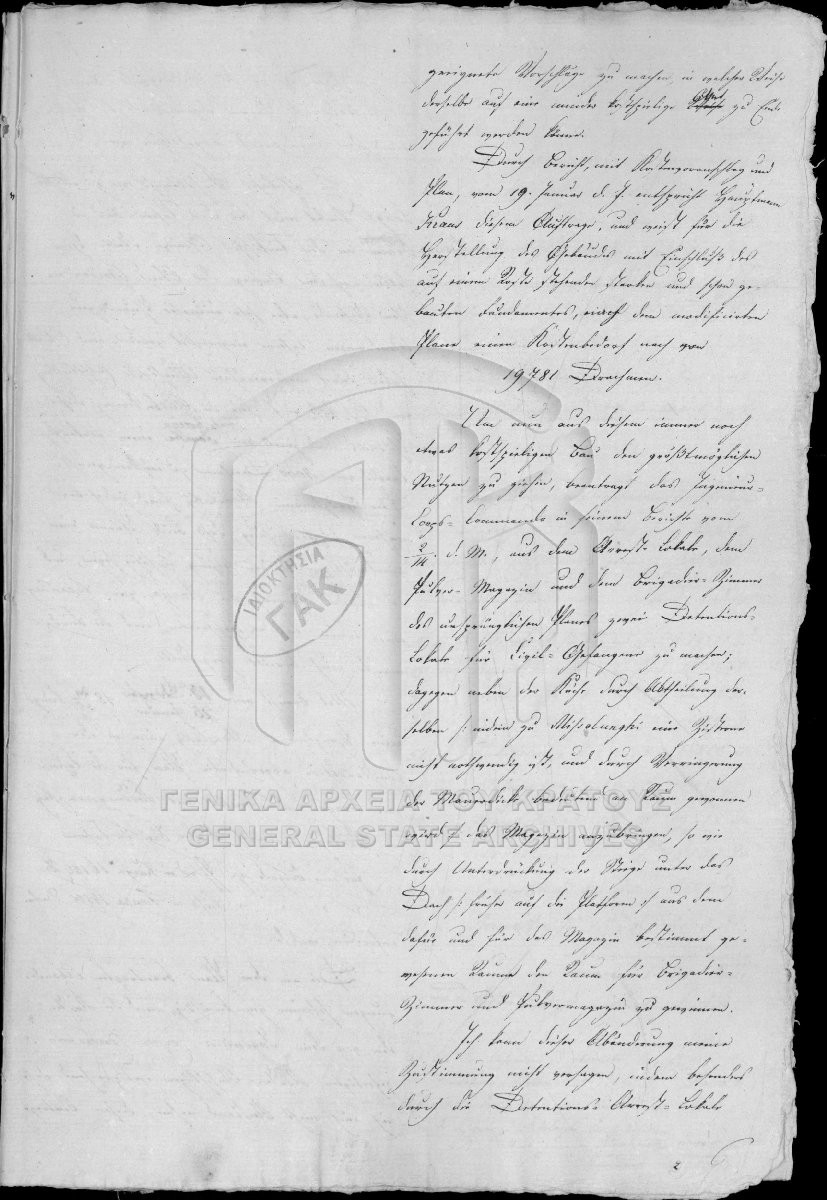 geeignete Vorschläge zu machen, in welcher Weise
derselbe auf eine minder kostspielige Art zu Ende
geführt werden könne.
Durch Bericht, mit Kostenvoranschlag und
Plan, vom 19. Januar d. J. entspricht Hauptmann
Kraus diesem Auftrage, und weist für die
Herstellung des Gebäudes mit Einschluß des
auf einem Roste stehenden starken und schon ge-
bauten Fundamentes, nach dem modificirten
Plane einen Kostenbedarf nach von
19781 Drachmen.
Um nun aus diesem immer noch
etwas kostspieligen Bau den größtmöglichen
Nutzen zu ziehen, beantragt das Ingenieur-
Corps-Commando in seinem Berichte vom
2/14. d. M., aus dem Arrest-Lokale, dem
Pulver-Magazin und dem Brigadier-Zimmer
des ursprünglichen Planes zwei Detentions-
Lokale für Civil-Gefangene zu machen;
dagegen neben der Küche durch Abtheilung der-
selben /: indem zu Missolunghi eine Zisterne
nicht nothwendig ist, und durch Verringerung
der Mauerdicke bedeutend an Raum gewonnen
wird :/ das Magazin anzubringen, so wie
durch Unterdrückung der Stiege unter das
Dach /: früher auf die Platform :/ aus dem
dafür und für das Magazin bestimmt ge-
wesenen Raume den Raum für Brigadier-
Zimmer und Pulvermagazin zu gewinnen.
Ich kann dieser Abänderung meine
Zustimmung nicht versagen, indem besonders
durch die Detentions-Arrest-Lokale
2
ΙΔΙΟΚΤΗΣΙΑ
ΓΑΚ
ΓΕΝΙΚΑ ΑΡΧΕΙΑ ΤΟΥ ΚΡΑΤΟΥΣ
GENERAL STATE ARCHIVES